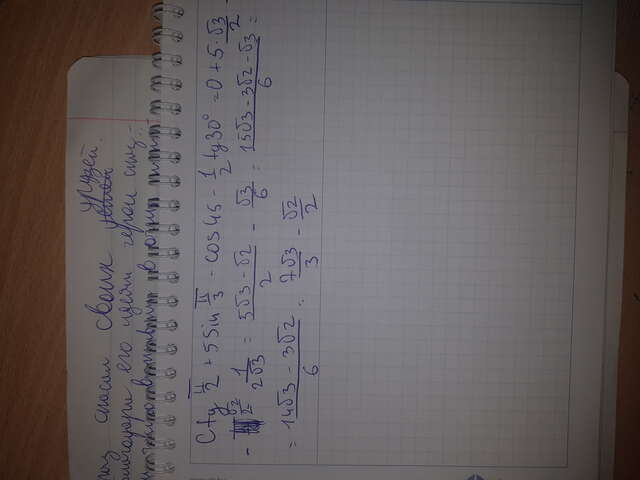 друзей.
спасал своих детей
благодаря его идеям герои спаз-
Ctg π/2 + 5 Sin π/3 - cos 45 - 1/2 tg 30° = 0 + 5 · √3/2 -
- √2/2 - 1/2√3 = 5√3 - √2/2 - √3/6 = 15√3 - 3√2 - √3/6 =
= 14√3 - 3√2/6 = 7√3/3 - √2/2